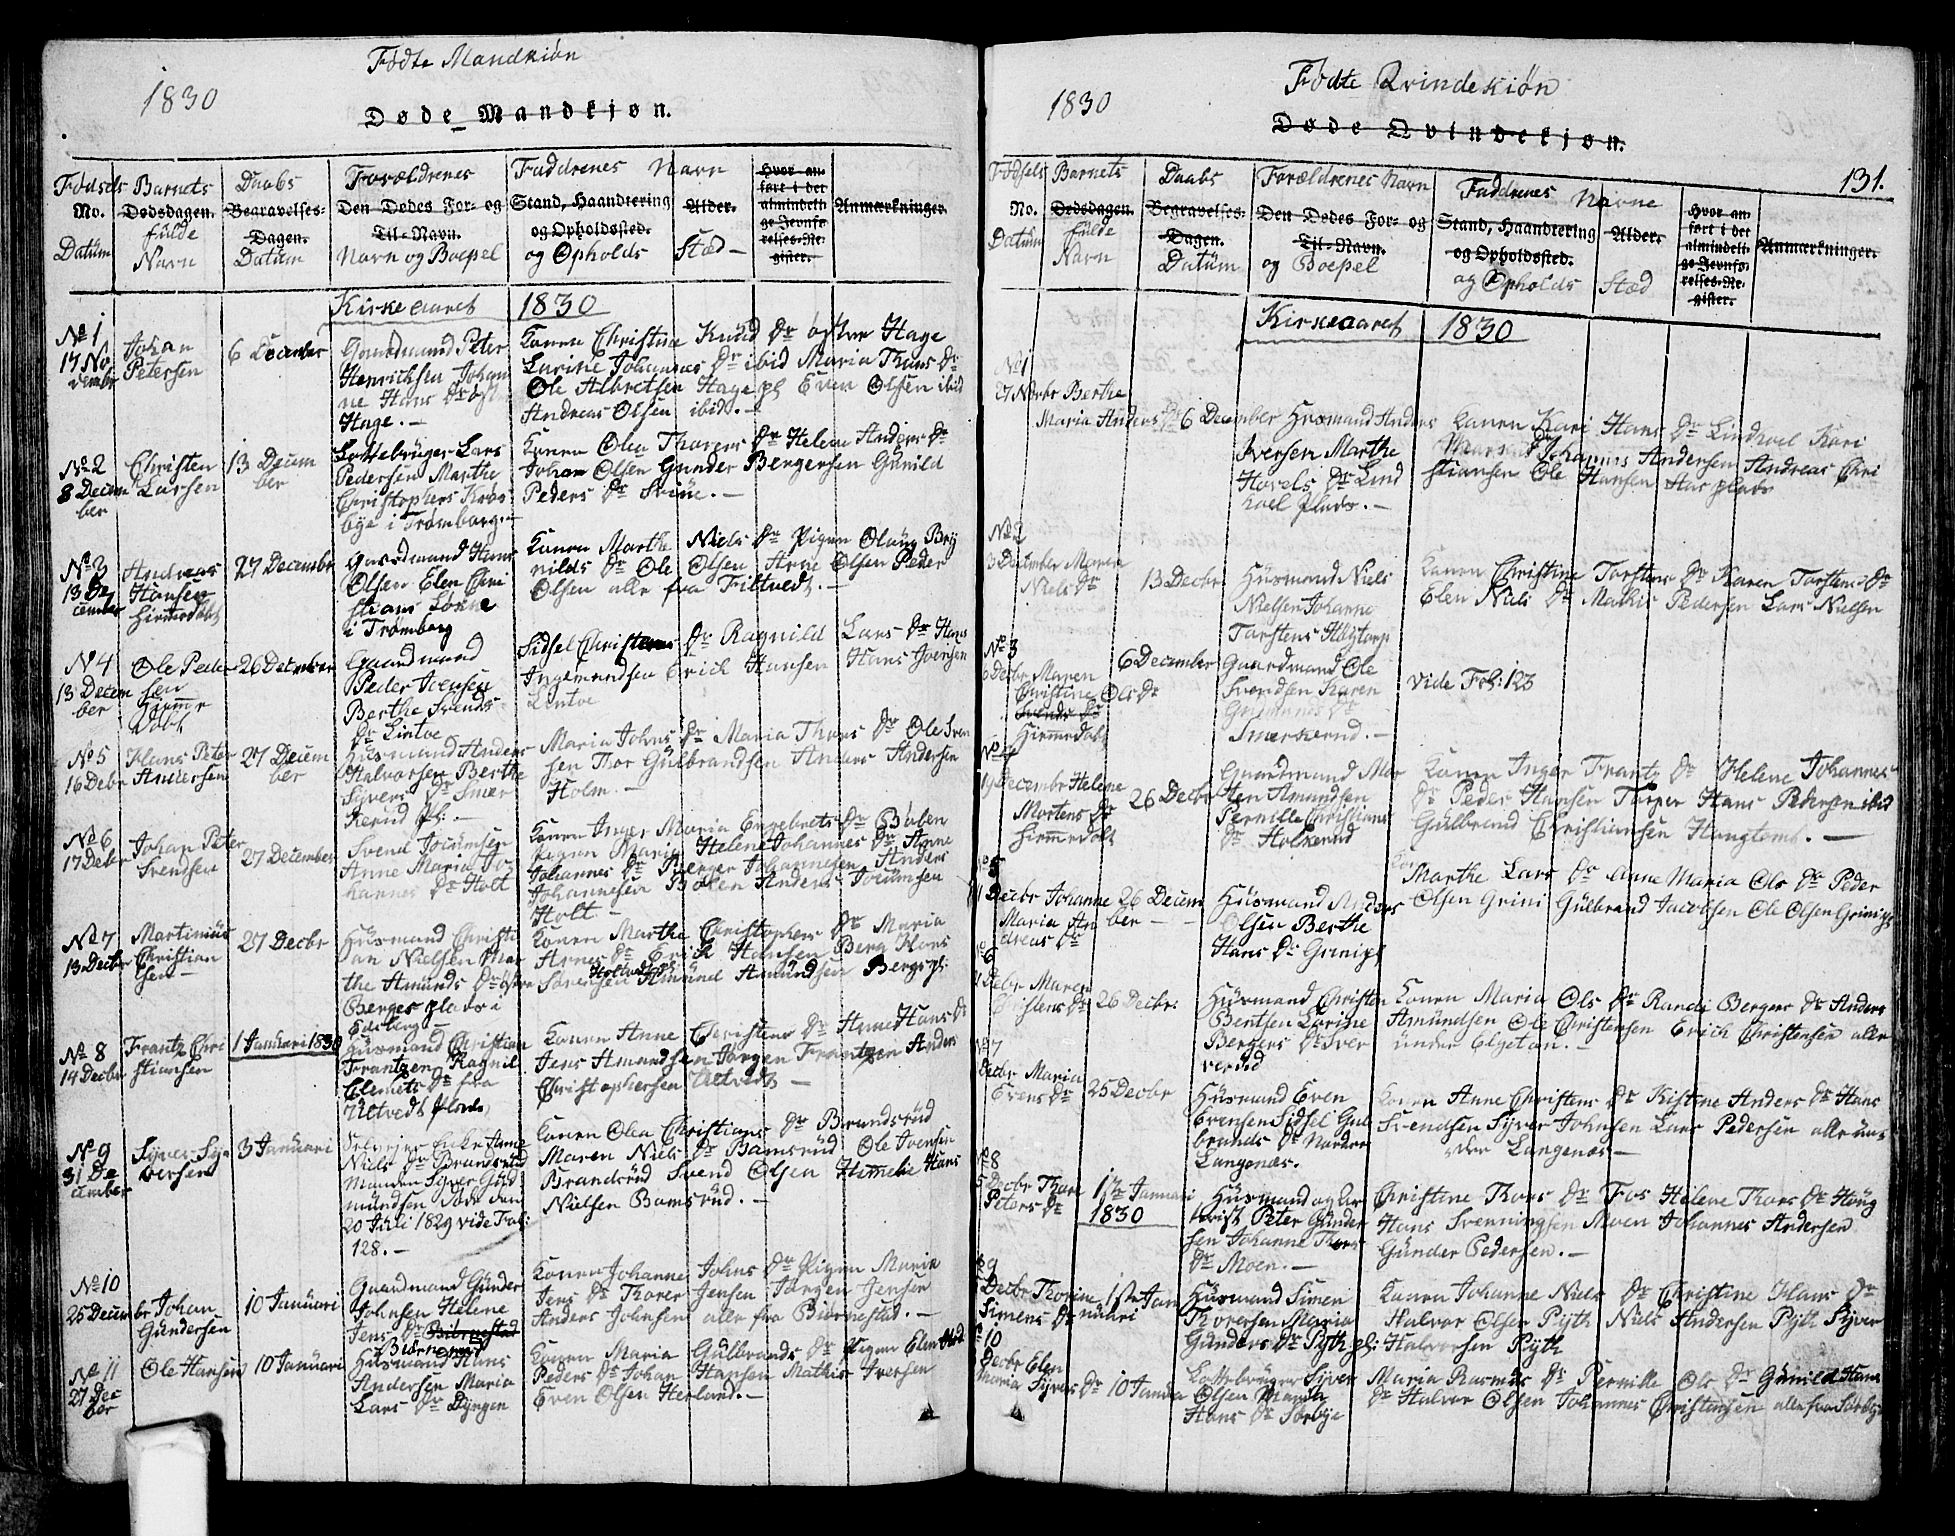 Fødte Mandkiøn
1830
Døde Mandkjøn.
Fødsels Barnets Daabs Forældrenes Faddrenes Navn
No. Dødsdagen. Begravelses-Dagen. Den Dødes For- og Til-Navn. Stand, Haandtering og Opholdssted. Alder. Hvor anført i det almindelige Jevnførelses-Register. Anmærkninger.
Datum fulde Navn Datum Navn og Boepel og Opholds Stæd
Kirkeaaret 1830
No 1
17 November
Johan Petersen
6 December
Gaardmand Peter
Henrichsen Johan
ne Hans Dr øst
Hage.
Konen Christine Knud Dr østre Hage
Larine Johannes Dr ibid Maria Thors Dr
Ole Albretsen Hage pl Even Olsen ibid
Andreas Olsen ibid.
No 2
8 December
Christen Larsen
13 December
Lottebruger Lars
Pedersen Marthe
Christophers Krøs
bye i Trømborg.
Konen Olea Thorers Dr Helene Anders Dr
Johan Olsen Gunder Bergersen Gunild
Peders Dr
No 3
13 December
Andreas Hansen
27 Decembr
Gaardmand Hans
Olsen Elen Chri
stians
i Trømborg
Konen Marthe Niels Dr Pigen Olaug Bry
nilds Dr Ole Olsen Arne Olsen Peder
Olsen alle fra Tiltvedt.
N 4
13 December
Ole Pedersen
26 December
Gaardmand
Peder Joensen
Berthe Svends
Dr Lintoe
Sidsel Christens Dr Ragnild Lars Dr Hans
Ingemundsen Erich Hansen Hans Joensen
Lintoe
No 5
16 Debr
Hans Peter Andersen
27 December
Husmand Anders
Halvorsen Berthe
Syvers Dr Smer
kerud pl:
Maria Johns Dr Maria Thors Dr Ole Sven
sen Thor Gulbrandsen Anders Andersen
Holm.
No 6
17 Debr
Johan Peter Svendsen
27 December
Svend Jocumsen
Anne Maria Jo
hannes Dr Holt
Konen Inger Maria Engebrets Dr Bøhen
Pigen Maria Helene Johannes Dr Anne
Johannes Dr Berger Johannesen Anders
Johannesen Bøhen Anders Jocumsen
Holt
No 7
13 Decbr
Martinius Christiansen
27 Decbr
Husmand Christi
an Nielsen Mar
the Amunds Dr østre
Berges plads i
Edsberg
Konen Marthe Christophers Dr Maria
Arnes Dr Erich Hansen Berg Hans
Sørensen Amund Amundsen Bergs pl.
No 8
14 Decbr
Frantz Christiansen
1 Januari 1830
Husmand Christian
Frantzen Ragnil
Clemets Dr fra
Ultvedt plads
Konen Anne Christens Dr Anne Hans Dr
Jens Amundsen Jørgen Frantzen Anders
Christophersen Ultvedt
No 9
31 December
Syver Syversen
3 Januari
Enke Anne
Niels Dr Brandsrud
Manden Syver Gud
mundsen døde den
20 Juli 1829 vide Fol:
128.
Konen Olea Christians Dr Brandsrud
Maren Niels Dr Bamsrud Ole Joensen
Brandsrud Svend Olsen Hans
Nielsen Bamsrud.
No 10
25 Decembr
Johan Gundersen
10 Januari
Gaardmand Gunder
Johnsen Helene
Jens Dr Biørnestad
Biørnestad
Konen Johanne Johns Dr Pigen Maria
Jens Dr Thorer Jensen Jørgen Jensen
Anders Johnsen alle fra Biørnestad.
No 11
27 December
Ole Hansen
10 Januari
Husmand Hans
Andersen Maria
Lars Dr Dyngen
Konen Maria Gulbrands Dr Pigen Elen
Peders Dr Johan Hansen Mathis Iversen
Even Olsen Herland.
Fødte Qvindekiøn
1830
Døde Qvindekjøn.
131.
Fødsels Barnets Daabs Forældrenes Navn Faddrenes Navne
No. Dødsdagen. Begravelses-Dagen. Den Dødes For- og Til-Navn. Stand, Haandtering og Opholdssted. Alder. Hvor anført i det almindelige Jevnførelses-Register. Anmærkninger.
Datum fulde Navn Datum og Boepel og Opholds Stæd
Kirkeaaret 1830
No 1
27 Novbr Berthe
Maria Anders Dr
6 December
Husmand Anders
Iversen Marthe
Hovels Dr Lind
hoel plads.
Konen Kari Hans Dr Lindhoel Kari
Johannes Andersen Andreas Chri
stiansen Ole Hansen plads
No 2
3 December Maren
Niels Dr
13 Decbr
Husmand Niels
Nielsen Johanne
Torstens Høytorp
Konen Christine Torstens Dr Karen Torstens Dr
Elen Niels Dr Mathis Pedersen Lars Nielsen
No 3
6 Decbr Maren
Christine Ols Dr
6 December
Gaardmand Ole
Svendsen Karen
Smerkerud.
vide Fol: 123
No 4
19 Decembr Helene
Mortens Dr
26 Decbr
Gaardmand Mor
ten Amundsen
Pernille Christians
Dr Holkerud
Konen Inger Frantz Dr Helene Johannes
Dr Peder Hansen Torper Hans Pedersen ibid
Gulbrand Christiansen
No 5
Decbr Johanne
Maria Andreas Dr
26 December
Husmand Anders
Olsen Berthe
Hans Dr Grini pl
Marthe Lars Dr Anne Maria Ols Dr Peder
Olsen Grini Gulbrand Jacobsen Ole Olsen Grini pl
No 6
Decbr Maren
Christens Dr
26 Decbr.
Husmand Christen
Bentsen Larine
Bergers Dr
Konen Maria Ols Dr Randi Bergers Dr Anders
Amundsen Ole Christensen Erich Christensen alle
under Elgetan.
No 7
Decbr Maria
Evens Dr
25 Decbr
Husmand Even
Evensen Sidsel Gul
brands Dr Nordre
Langenæs.
Konen Anne Christens Dr Kistine Anders Dr Hans
Svendsen Syver Johnsen Lars Pedersen alle un
der Langenæs
No 8
Decbr Thore
Peters Dr
17 Januari
1830
Husmand og
Peter Gunder
sen Johanne Thors
Dr Moen.
Christine Thors Dr Fos Helene Thors Dr Houg
Hans Svenningsen Moen Johannes Andersen
Gunder Pedersen.
No 9
Decbr Thorine
Simens Dr
Januari
Husmand Simen
Thoresen Maria
Gunders Dr Pyth pl:
Konen Johanne Niels Dr Christine Hans Dr
Halvor Olsen Pyth Niels Andersen Pyth Syver
Halvorsen Pyth
No 10
Decbr Elen
Maria Syvers Dr
10 Janua
Lottebruger Syver
Olsen
Hans Dr Sørbye
Maria Rasmus Dr Pernille Ols Dr Gunild Hans
Dr Halvor Olsen Johannes Christensen alle fra Sørbye